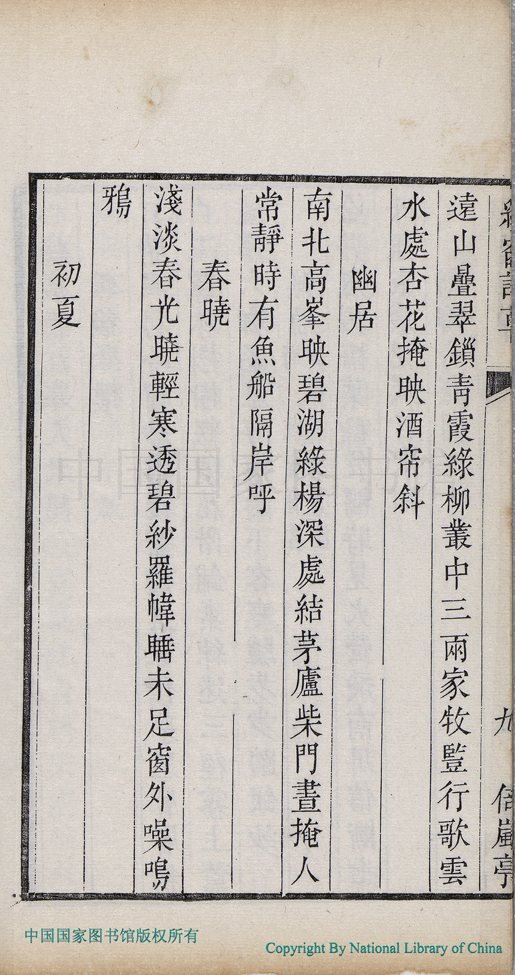 遠山疊翠鎖青霞綠柳叢中三兩家牧豎行歌雲
水處杏花掩映酒帘斜
幽居
南北高峯映碧湖綠楊深處結茅廬柴門晝掩人
常靜時有魚船隔岸呼
春曉
淺淡春光曉輕寒透碧紗羅幃睡未足窗外噪鳴
鴉
初夏
九
倍嵐亭
中国国家图书馆版权所有
Copyright By National Library of China